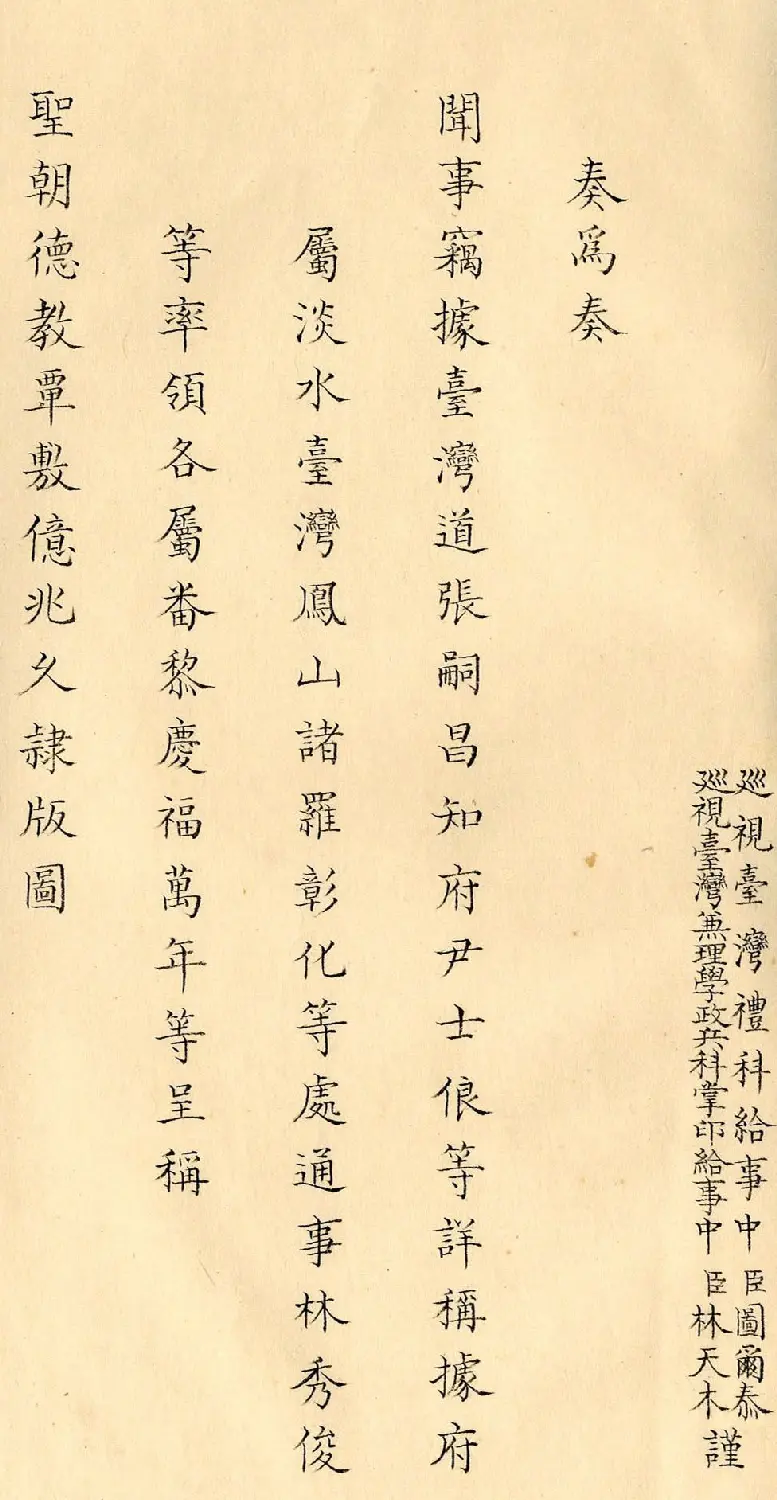 巡視臺灣禮科給事中臣圖爾泰
巡視臺灣兼理學政兵科掌印給事中臣林天木謹
奏爲奏
聞事竊據臺灣道張嗣昌知府尹士俍等詳稱據府
屬淡水臺灣鳳山諸羅彰化等處通事林秀俊
等率領各屬番黎慶福萬年等呈稱
聖朝德教覃敷億兆久隸版圖